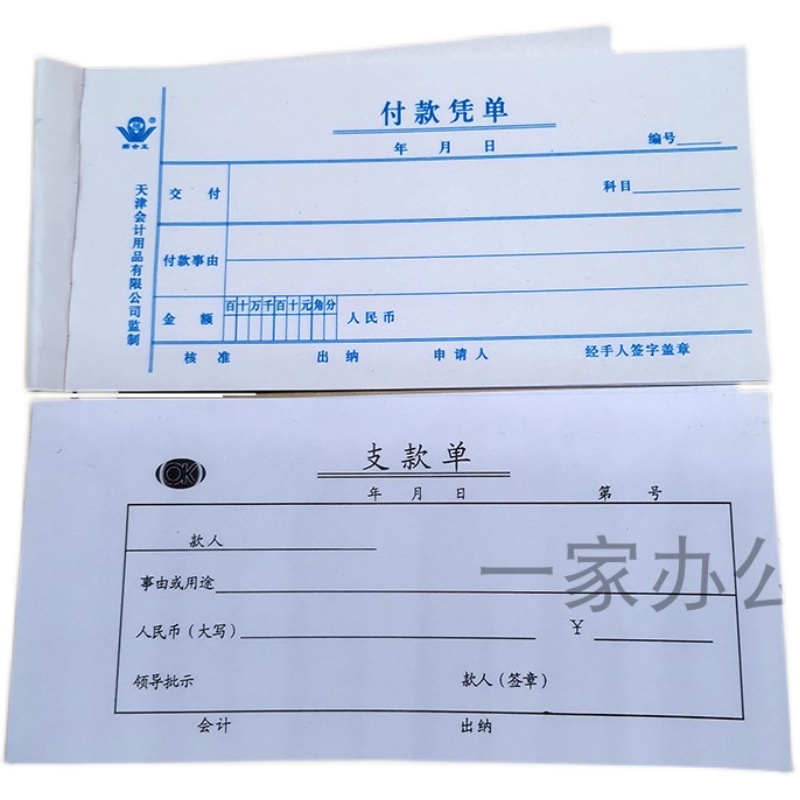 付款凭单
年 月 日
编号
交 付
科目
付款事由
金 额
百十万千百十元角分
人民币
核 准
出 纳
申 请 人
经手人签字盖章
®
天津会计用品有限公司监制
支款单
OK
年 月 日
第 号
款人
事由或用途
人民币（大写）
¥
领导批示
款人（签章）
会计
出纳
一家办公